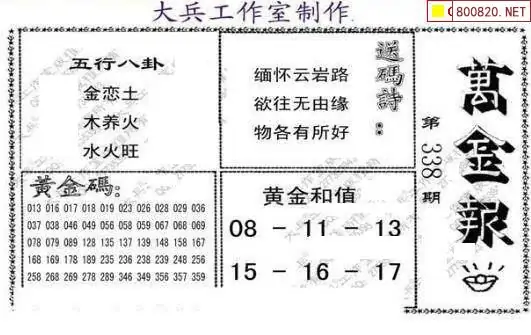 大兵工作室制作
800820.NET
五行八卦
金恋土
木养火
水火旺
缅怀云岩路
欲往无由缘
物各有所好
送碼詩：
萬金報
第338期
黄金碼：
013 016 017 018 019 023 026 028 029 036
037 038 046 049 056 058 059 067 068 069
078 079 089 128 135 137 139 148 158 167
168 169 178 189 235 236 238 239 248 256
258 268 269 278 289 346 349 356 357 359
黄金和值
08－11－13
15－16－17